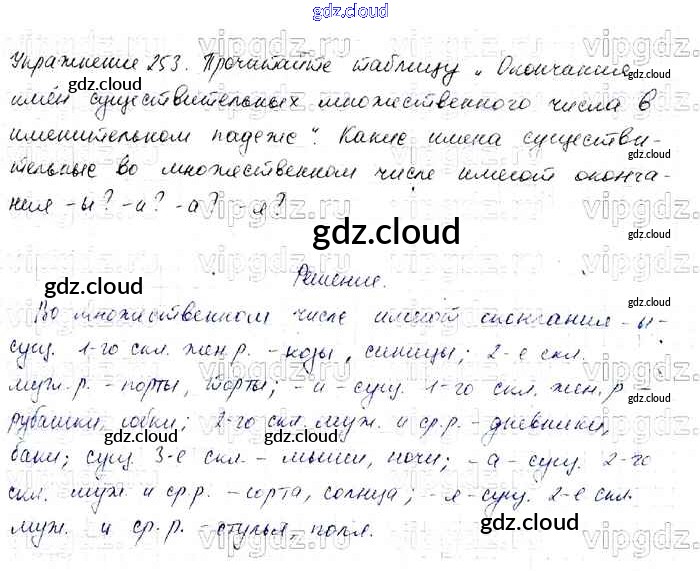 gdz.cloud
Упражнение 253. Прочитайте таблицу „Окончания
имён существительных множественного числа в
именительном падеже". Какие имена существи-
тельные во множественном числе имеют оконча-
ния -ы? -и? -а? -я?
gdz.cloud
Решение.
Во множественном числе имеют окончания -ы-
сущ. 1-го скл. жен.р. - козы, синицы; 2-е скл.
муж.р. - порты, торты; -и- сущ. 1-го скл. жен.р -
рубашки, юбки; 2-го скл. муж. и ср.р. - дневники,
баки; сущ. 3-е скл. - мыши, ночи; -а- сущ. 2-го
скл. муж. и ср.р. - сорта, солнца; -я- сущ. 2-е скл.
муж. и ср.р. - стулья, поля.